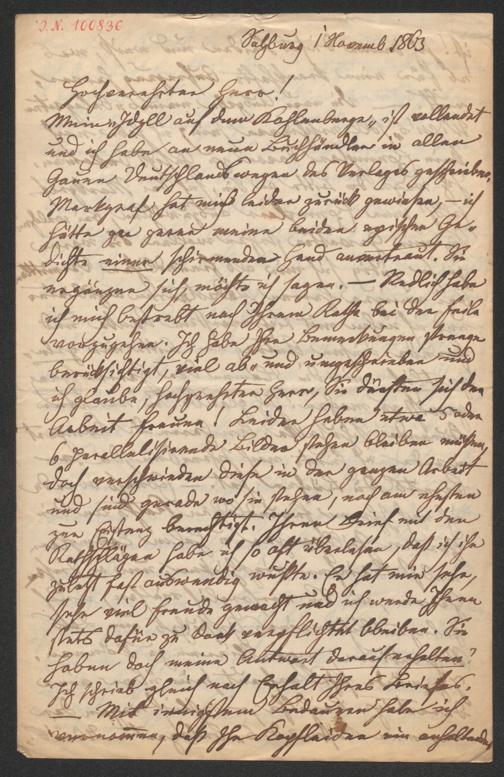 J.N. 100836
Salzburg 1 Novemb 1863
Hochverehrter Herr!
Mein "Idyll auf dem Kahlenberge" ist vollendet
und ich habe an neun Buchhändler in allen
Gauen Deutschlands wegen des Verlages geschrieben.
Markgraf hat mich leider zurück gewiesen, — ich
hätte gar gerne meine beiden epischen Ge-
dichte einer schirmenden Hand anvertraut. Sie
ergänzen sich, möchte ich sagen. — Redlich habe
ich mich bestrebt nach Ihrem Rathe bei der Feile
vorzugehen. Ich habe Ihre Bemerkungen strenge
berücksichtigt, viel ab- und umgeschrieben und
ich glaube, hochverehrter Herr, Sie dürften sich der
Arbeit freuen! Leider haben etwa 5 oder
6 parallelisirende Bilder stehen bleiben müssen,
doch verschwinden diese in der ganzen Arbeit
und sind gerade wo sie stehen, noch am ehesten
zur Existenz berechtigt. Ihren Brief mit den
Rathschlägen habe ich so oft überlesen, daß ich ihn
zuletzt fast auswendig wußte. Er hat mir sehr,
sehr viel Freude gemacht und ich werde Ihnen
stets dafür zu Dank verpflichtet bleiben. Sie
haben doch meine Antwort darauf erhalten?
Ich schrieb gleich nach Erhalt Ihres Briefes.
— Mit innigstem Bedauern habe ich
vernommen, daß Ihr Kopfleiden ein anhaltendes